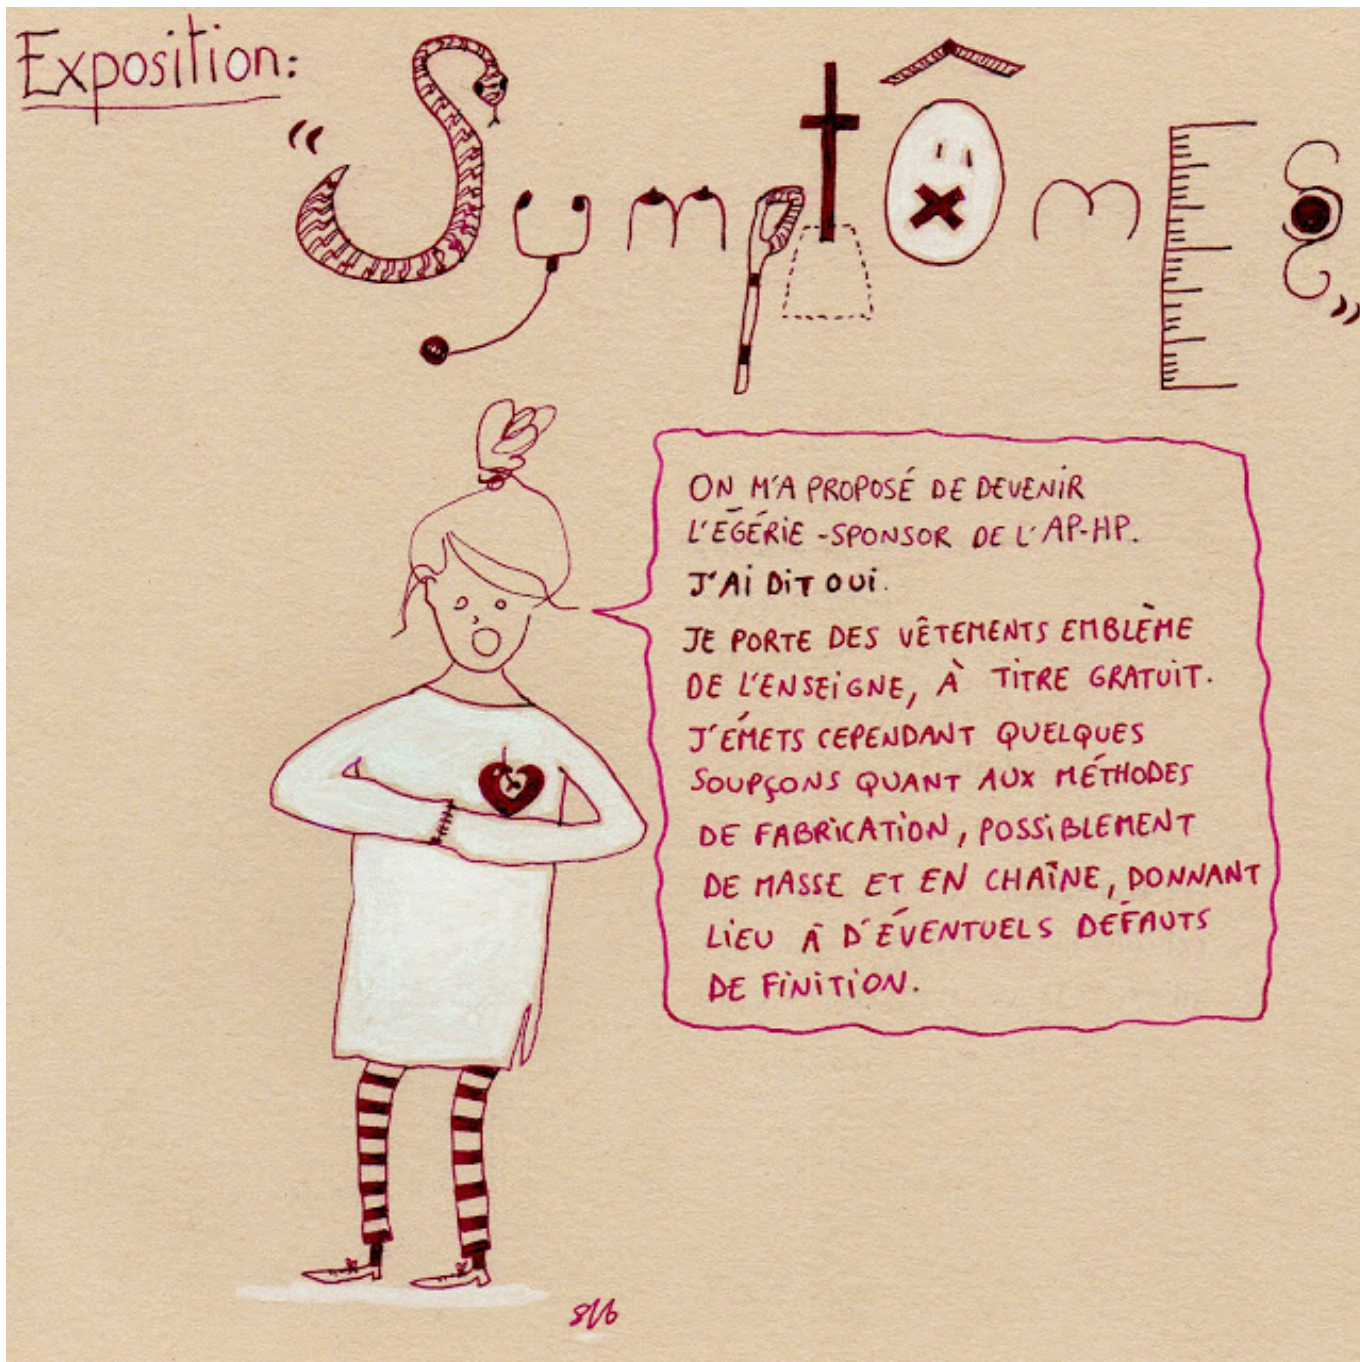 Exposition:
"SymptômEs"
ON M'A PROPOSÉ DE DEVENIR
L'ÉGÉRIE-SPONSOR DE L'AP-HP.
J'Ai DiT OUi.
JE PORTE DES VÊTEMENTS EMBLÈME
DE L'ENSEiGNE, À TITRE GRATUIT.
J'ÉMETS CEPENDANT QUELQUES
SOUPÇONS QUANT AUX MÉTHODES
DE FABRiCATiON, POSSiBLEMENT
DE MASSE ET EN CHAÎNE, DONNANT
LiEU À D'ÉVENTUELS DÉFAUTS
DE FiNiTiON.